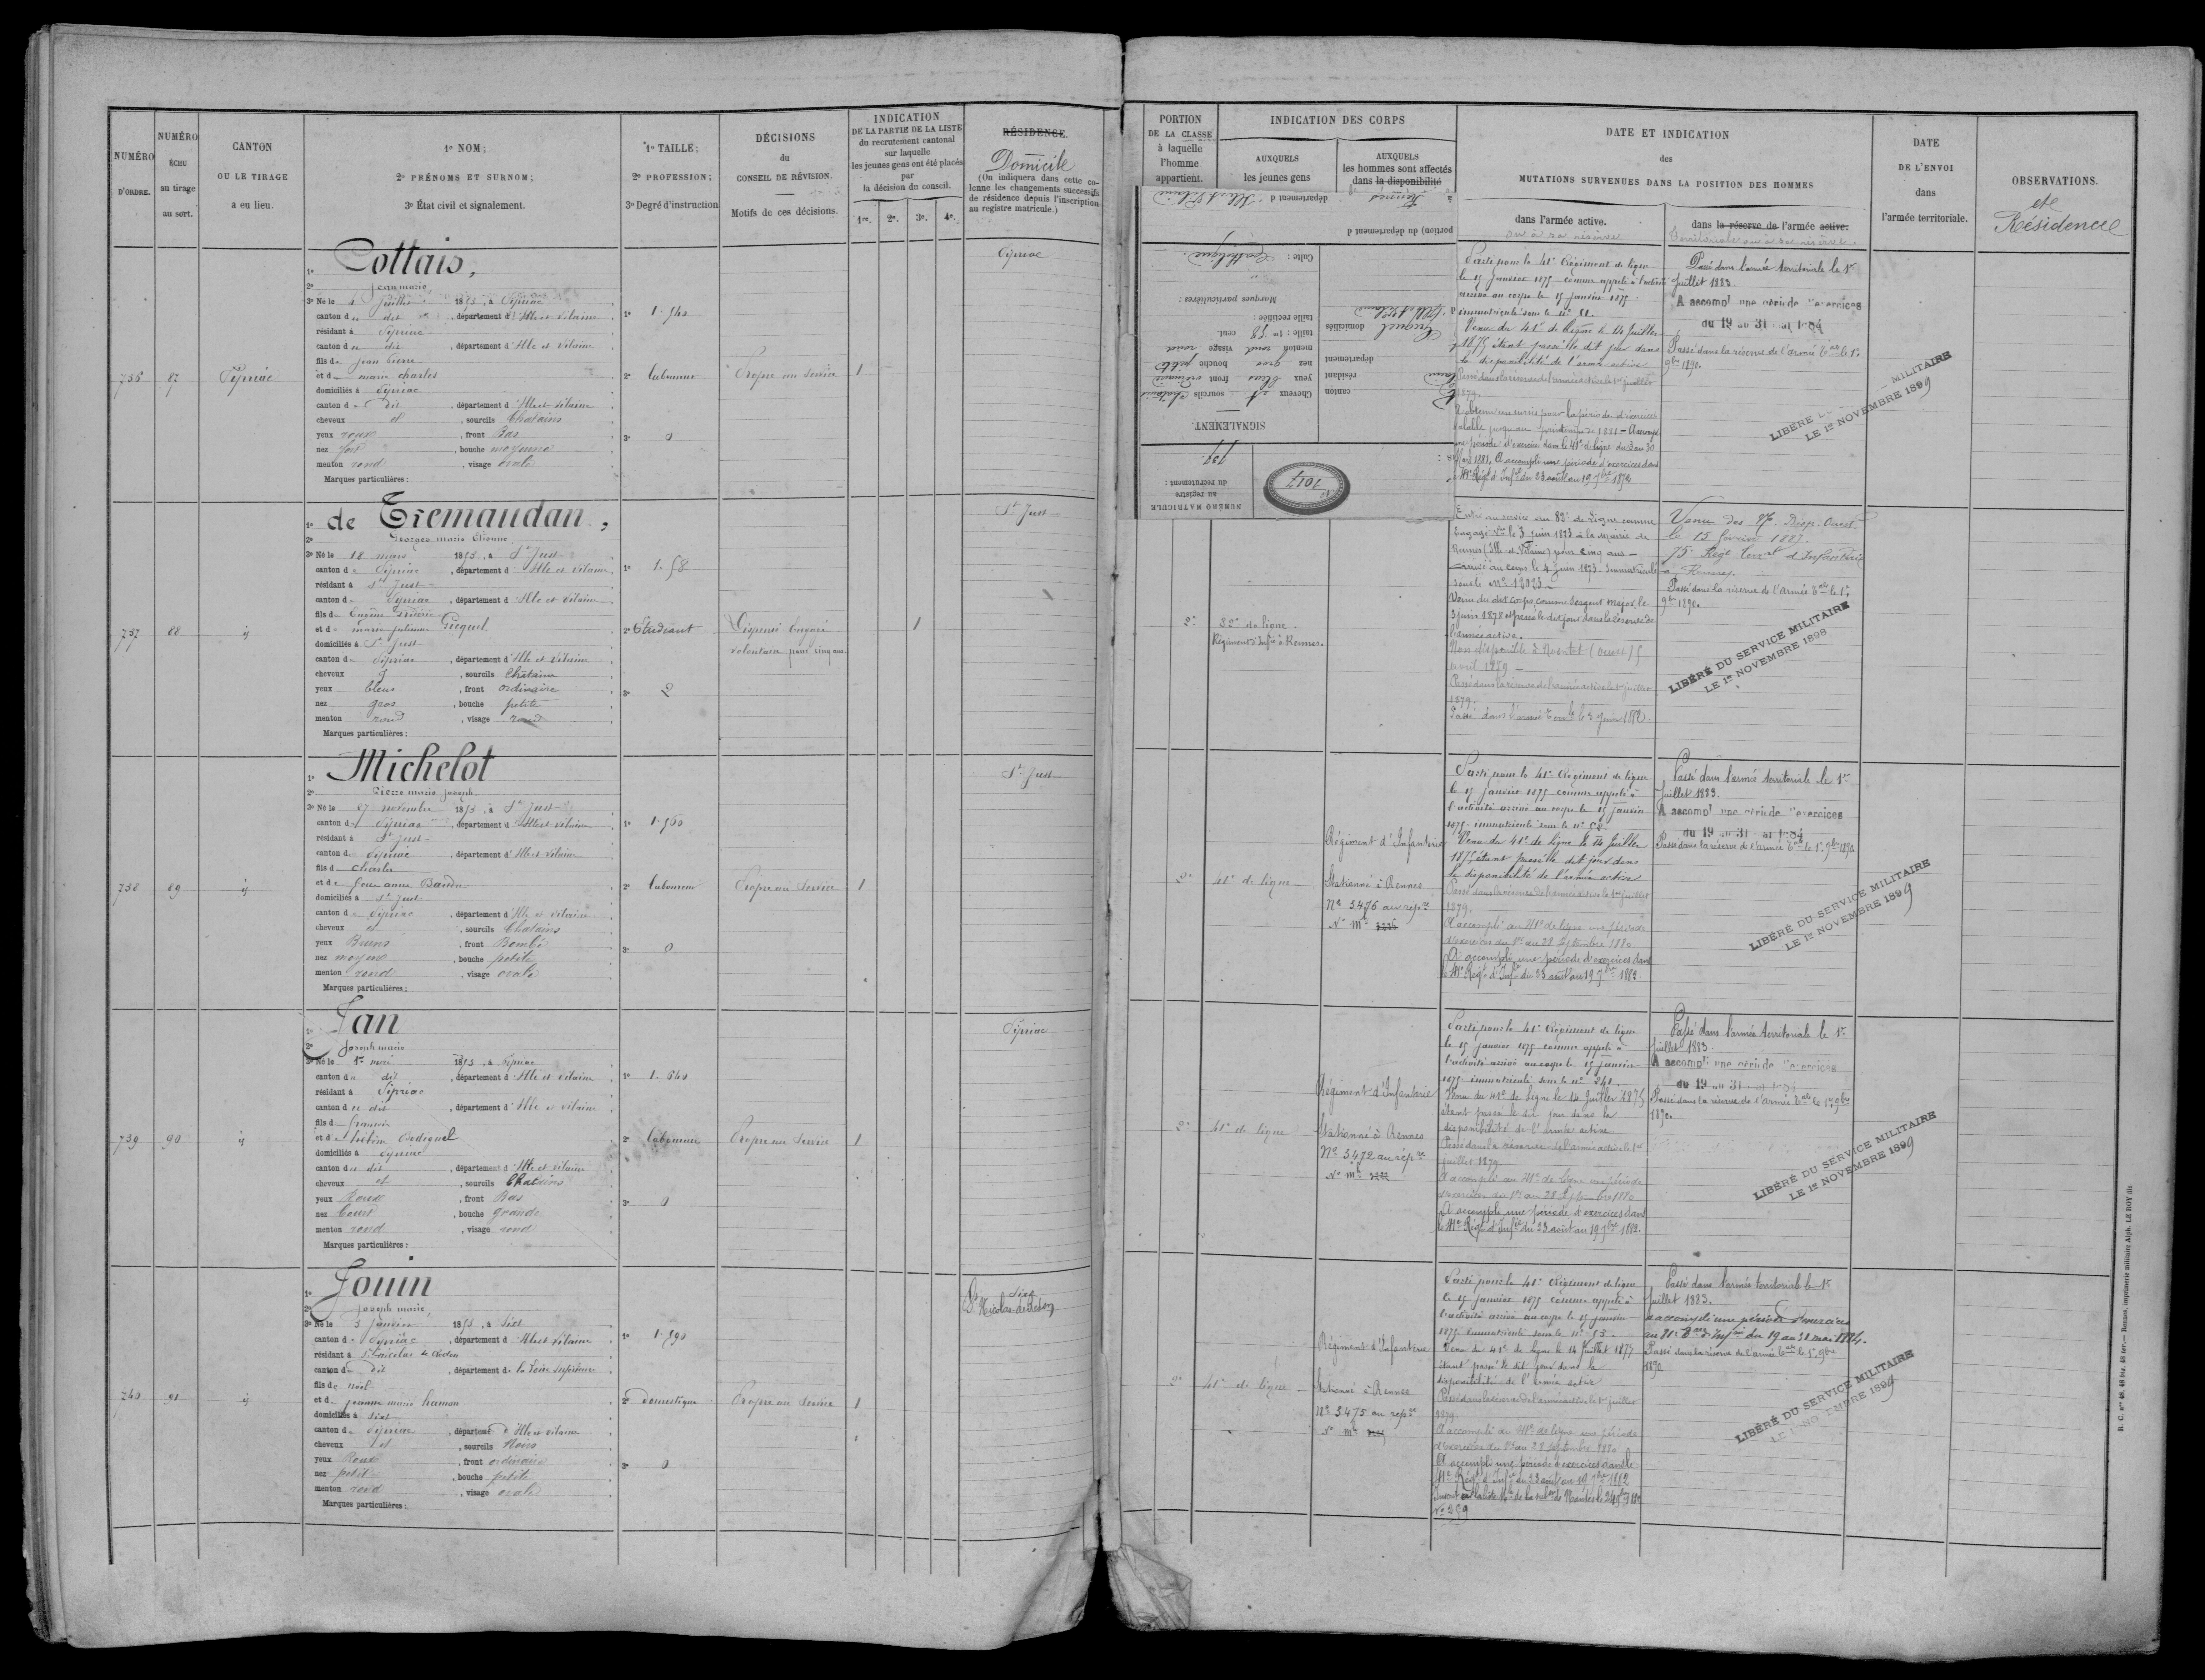 NUMÉRO
D'ORDRE.
NUMÉRO
ÉCHU
au tirage
au sort.
CANTON
OU LE TIRAGE
a eu lieu.
1º NOM;
2º PRÉNOMS ET SURNOM;
3º État civil et signalement.
1º TAILLE;
2º PROFESSION;
3º Degré d'instruction
DÉCISIONS
du
CONSEIL DE RÉVISION.
Motifs de ces décisions.
INDICATION
DE LA PARTIE DE LA LISTE
du recrutement cantonal
sur laquelle
les jeunes gens ont été placés
par
la décision du conseil.
1re. 2e. 3e. 4e.
RÉSIDENCE.
Domicile
(On indiquera dans cette co-
lonne les changements successifs
de résidence depuis l'inscription
au registre matricule.)
736
87
Pipriac
1º Cottais,
2º Jean marie
3º Né le juillet 1853, à Pipriac
canton du dit, département d'Ille et Vilaine
résidant à Pipriac
canton du dit, département d'Ille et Vilaine
fils de Jean Pierre
et de marie charles
domiciliés à Pipriac
canton du dit, département d'Ille et Vilaine
cheveux et, sourcils Chatains
yeux roux, front Bas
nez fort, bouche moyenne
menton rond, visage ovale
Marques particulières :
1º 1.540
2º laboureur
3º 0
Propre au service
1
Pipriac
737
88
id
1º de Tremaudan,
2º Georges marie Etienne
3º Né le 18 mars 1853, à St Just
canton de Pipriac, département d'Ille et Vilaine
résidant à St Just
canton de Pipriac, département d'Ille et Vilaine
fils de Eugène Frédéric
et de marie julienne Gicquel
domiciliés à St Just
canton de Pipriac, département d'Ille et Vilaine
cheveux et, sourcils Châtains
yeux bleus, front ordinaire
nez gros, bouche petite
menton rond, visage rond
Marques particulières :
1º 1.58
2º Etudiant
3º 2
Dispensé Engagé
volontaire pour cinq ans
1
St Just
738
89
id
1º Michelot
2º Pierre marie Joseph
3º Né le 27 novembre 1853, à St Just
canton de Pipriac, département d'Ille et Vilaine
résidant à St Just
canton de Pipriac, département d'Ille et Vilaine
fils de Charles
et de
domiciliés à St Just
canton de Pipriac, département d'Ille et Vilaine
cheveux et, sourcils Chatains
yeux Bruns, front Bombé
nez moyen, bouche petite
menton rond, visage ovale
Marques particulières :
1º 1.560
2º laboureur
3º 0
Propre au Service
1
St Just
739
90
id
1º Jan
2º Joseph marie
3º Né le 1er 1853, à Pipriac
canton du dit, département d'Ille et Vilaine
résidant à Pipriac
canton du dit, département d'Ille et Vilaine
fils de francois
et d
domiciliés à Pipriac
canton du dit, département d'Ille et Vilaine
cheveux et, sourcils Chatains
yeux Roux, front Bas
nez Court, bouche grande
menton rond, visage rond
Marques particulières :
1º 1.640
2º laboureur
3º 0
Propre au Service
1
Pipriac
740
91
id
1º Jouin
2º Joseph marie,
3º Né le 3 janvier 1853, à Sixt
canton de Pipriac, département d'Ille et Vilaine
résidant à St Nicolas de Redon
canton du dit, département de la Loire inférieure
fils de noël
et de jeanne marie hamon
domiciliés à Sixt
canton de Pipriac, département d'Ille et vilaine
cheveux et, sourcils Noirs
yeux Roux, front ordinaire
nez petit, bouche petite
menton rond, visage ovale
Marques particulières :
1º 1.590
2º domestique
3º 0
Propre au Service
1
Sixt
St Nicolas-de-Redon
PORTION
DE LA CLASSE
à laquelle
l'homme
appartient.
INDICATION DES CORPS
AUXQUELS
les jeunes gens
AUXQUELS
les hommes sont affectés
dans la disponibilité
DATE ET INDICATION
des
MUTATIONS SURVENUES DANS LA POSITION DES HOMMES
dans l'armée active.
ou à sa réserve
dans la réserve de l'armée active.
Territoriale ou à sa réserve
DATE
DE L'ENVOI
dans
l'armée territoriale.
OBSERVATIONS.
et
Résidence
NUMÉRO MATRICULE
au registre
du recrutement :
737
Nº
1017
SIGNALEMENT.
Cheveux et sourcils chatains
yeux bleus front ordinaire
nez gros bouche petite
menton rond visage rond
taille : 1m 58 cent.
taille rectifiée :
Marques particulières :
Culte : Catholique
canton
résidant
département
domiciliés
Gicquel
portion) du département d
à Rennes département d'Ille et Vilaine
Parti pour le 41e Régiment de ligne
le 15 janvier 1875 comme appelé à l'activité
arrivé au corps le 15 janvier 1875
immatriculé sous le nº 51.
Venu du 41e de ligne le 14 Juillet
1875 étant passé le dit jour dans
la disponibilité de l'armée active
Passé dans la réserve de l'armée active le 1er juillet
1879.
A obtenu un sursis pour la période d'exercices
valable jusqu'au printemps de 1881 - A accompli
une période d'exercices dans le 41e de ligne du 3 au 30
1881. A accompli une période d'exercices dans
le 41e Régt d'Infie du 23 août au 19 7bre 1882
Passé dans l'armée territoriale le 1er
Juillet 1883.
A accompli une période d'exercices
du 19 au 31 mai 1884
Passé dans la réserve de l'armée Tale le 1er
9bre 1890.
MILITAIRE
LIBÉRÉ
LE 1er NOVEMBRE 1899
2e
82e de ligne
Régiment d'Infie à Rennes.
Entré au service au 82e de ligne comme
Engagé Vre le 3 juin 1873 à la Mairie de
Rennes (Ille-et-Vilaine) pour cinq ans -
arrivé au corps le 4 juin 1873 - immatriculé
sous le Nº 12923 -
Venu du dit corps, comme Sergent Major, le
3 juin 1878 et passé le dit jour dans la réserve de
l'armée active.
Non disponible
avril 1879 -
Passé dans la réserve de l'armée active le 1er juillet
1879.
Passé dans l'armée Terrle le 3 juin 1882.
Venu des Disp. Ouest.
le 15 février 1887.
75e Régt Terral d'Infanterie
à Rennes.
Passé dans la réserve de l'armée Tale le 1er
9bre 1890.
LIBÉRÉ DU SERVICE MILITAIRE
LE 1er NOVEMBRE 1898
2e
41e de ligne.
Régiment d'Infanterie
Stationné à Rennes
Nº 3476 au repre
Nº mle
Parti pour le 41e Régiment de ligne
le 15 janvier 1875 comme appelé à
l'activité arrivé au corps le 15 janvier
1875 immatriculé sous le nº 58.
Venu du 41e de ligne le 14 Juillet
1875 étant passé le dit jour dans
la disponibilité de l'armée active
Passé dans la réserve de l'armée active le 1er juillet
1879.
A accompli au 41e de ligne une période
d'exercices du 1er au 28 Septembre 1880
A accompli une période d'exercices dans
le 41e Régt d'Infie du 23 août au 19 7bre 1882.
Passé dans l'armée territoriale le 1er
Juillet 1883.
A accompli une période d'exercices
du 19 au 31 mai 1884
Passé dans la réserve de l'armée Tale le 1er 9bre 1890
LIBÉRÉ DU SERVICE MILITAIRE
LE 1er NOVEMBRE 1899
2e
41e de ligne
Régiment d'Infanterie
Stationné à Rennes
Nº 3472 au repre
Nº mle
Parti pour le 41e Régiment de ligne
le 15 janvier 1875 comme appelé à
l'activité arrivé au corps le 15 janvier
1875 immatriculé sous le nº 241.
Venu du 41e de ligne le 14 Juillet 1875
étant passé le dit jour dans la
disponibilité de l'armée active
Passé dans la réserve de l'armée active le 1er
juillet 1879.
A accompli au 41e de ligne une période
d'exercices du 1er au 28 Septembre 1880
A accompli une période d'exercices dans
le 41e Régt d'Infie du 23 août au 19 7bre 1882.
Passé dans l'armée territoriale le 1er
Juillet 1883.
A accompli une période d'exercices
du 19 au 31 mai 1884
Passé dans la réserve de l'armée Tale le 1er 9bre
1890.
LIBÉRÉ DU SERVICE MILITAIRE
LE 1er NOVEMBRE 1899
2e
41e de ligne.
Régiment d'Infanterie
Stationné à Rennes
Nº 3475 au repre
Nº mle
Parti pour le 41e Régiment de ligne
le 15 janvier 1875 comme appelé à
l'activité arrivé au corps le 15 janvier
1875 immatriculé sous le nº 53.
Venu du 41e de ligne le 14 Juillet 1877
étant passé le dit jour dans la
disponibilité de l'armée active
Passé dans la réserve de l'armée active le 1er juillet
1879.
A accompli au 41e de ligne une période
d'exercices du 1er au 28 septembre 1880
A accompli une période d'exercices dans le
41e Régt d'Infie du 23 août au 19 7bre 1882
Nº 259
Passé dans l'armée territoriale le 1er
Juillet 1883.
A accompli une période d'exercices
au 81e d'Infie du 19 au 31 mai 1884.
Passé dans la réserve de l'armée Tale le 1er 9bre
1890.
LIBÉRÉ DU SERVICE MILITAIRE
LE 1er NOVEMBRE 1899
R. C. nos 48, 48 bis, 48 ter. — Rennes, imprimerie militaire Alph. LE ROY fils